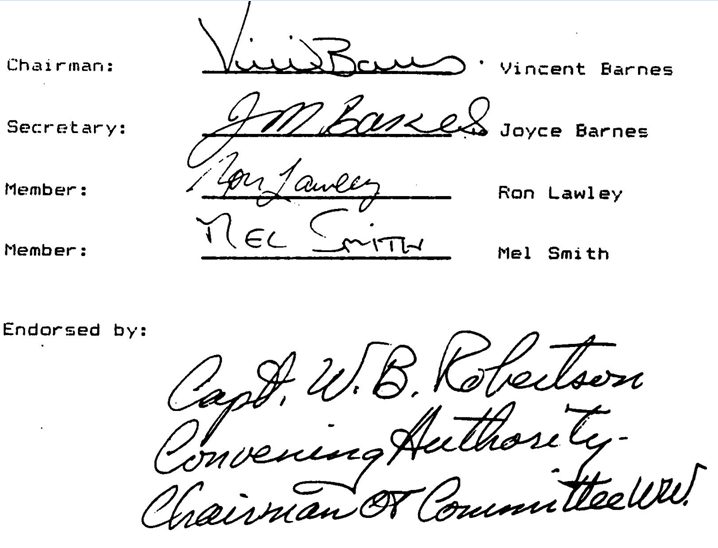 Chairman: Vinci Barnes Vincent Barnes
Secretary: J M Barnes Joyce Barnes
Member: Ron Lawley Ron Lawley
Member: MEL SMITH Mel Smith
Endorsed by:
Capt. W. B. Robertson
Convening Authority-
Chairman OT Committee WW.